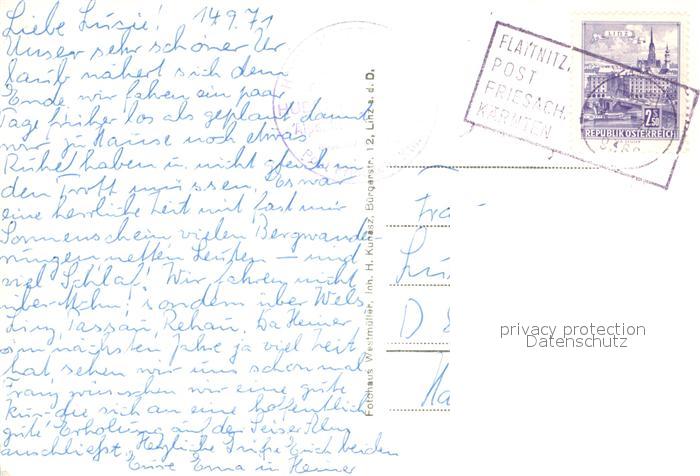 Liebe Luzie! 14.9.71
Unser sehr schöner Ur
laub nähert sich dem
Ende, wir fahren ein paar
Tage früher los als geplant, damit
wir zu Hause noch etwas
Ruhe haben u. nicht gleich in
den Trott müssen. Es war
eine herrliche Zeit mit fast nur
Sonnenschein vielen Bergwande-
rungen netten Leuten – und
viel Schlaf! Wir fahren nicht
über sondern über Wels
Linz, Passau, Rehau. Da Heiner
im nächsten Jahre ja viel Zeit
hat sehen wir uns schon mal
Franz wünschen wir eine gute
Kur die sich an eine hoffentlich
gute Erholung auf der Seiser Alm
anschließt. Herzliche Grüße Euch beiden
Eure Erna u. Heiner
Fotohaus Westmüller, Inh. H. Kunasz, Bürgerstr. 12, Linz a. d. D.
FLATTNITZ,
POST
FRIESACH,
KÄRNTEN
LINZ
2.50
REPUBLIK ÖSTERREICH
Fra
Lu
D 8
privacy protection
Datenschutz